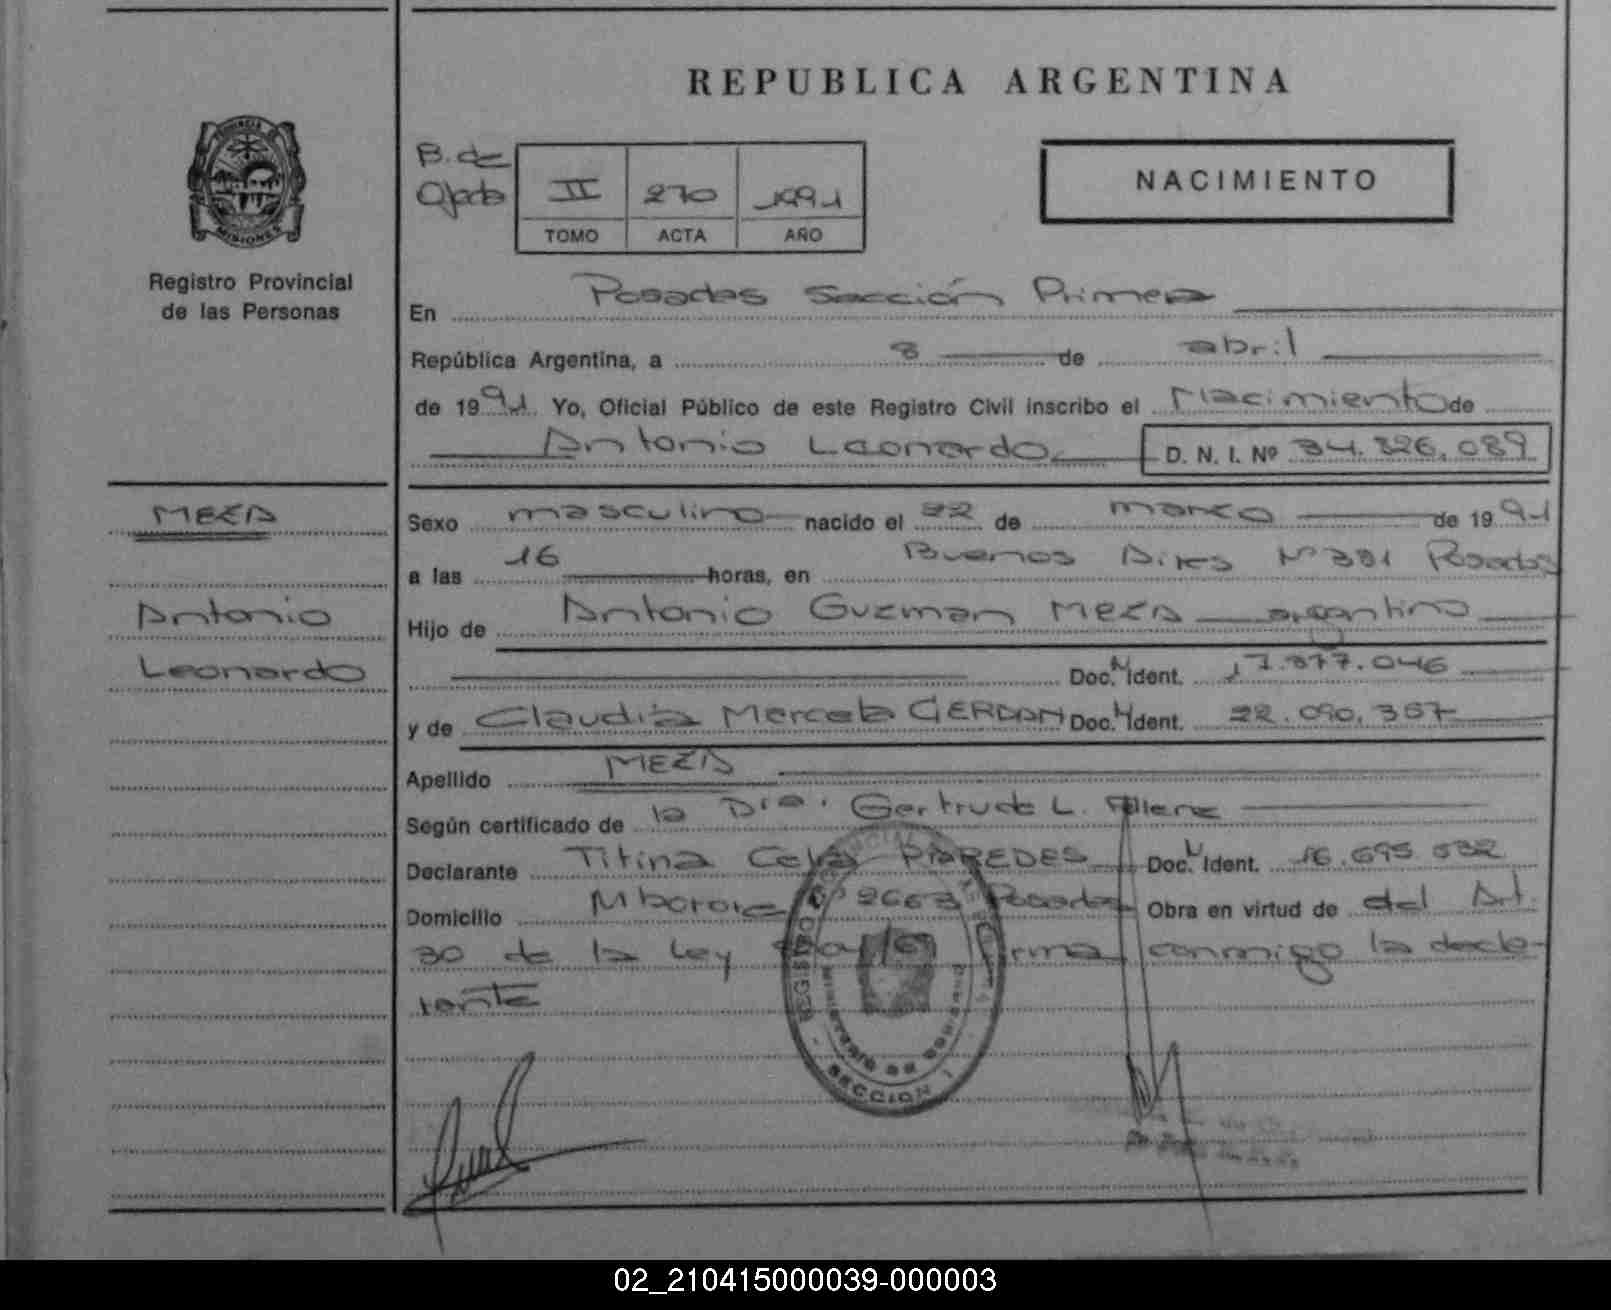 REPUBLICA ARGENTINA
PROVINCIA DE
MISIONES
Registro Provincial
de las Personas
B. de
Ojeda
II 270 1991
TOMO ACTA AÑO
NACIMIENTO
En Posadas Sección Primera
República Argentina, a 8 de abril
de 1991 Yo, Oficial Público de este Registro Civil inscribo el Nacimiento de
Antonio Leonardo D. N. I. Nº 34.326.089
MEZA
Antonio
Leonardo
Sexo masculino nacido el 22 de marzo de 1991
a las 16 horas, en Buenos Aires Nº 381 Posadas
Hijo de Antonio Guzman MEZA argentino
Doc. N Ident. 17.877.046
y de Claudia Marcela GERDAN Doc. N Ident. 22.090.367
Apellido MEZA
Según certificado de la Dra. Gertrude L.
Declarante Titina Celia PAREDES Doc. N Ident. 16.695.532
Domicilio Mborore Nº 2663 Posadas Obra en virtud de del Art.
30 de la Ley Firma conmigo la decla-
rante
MINISTERIO DE GOBIERNO
SECCION 1
02_210415000039-000003